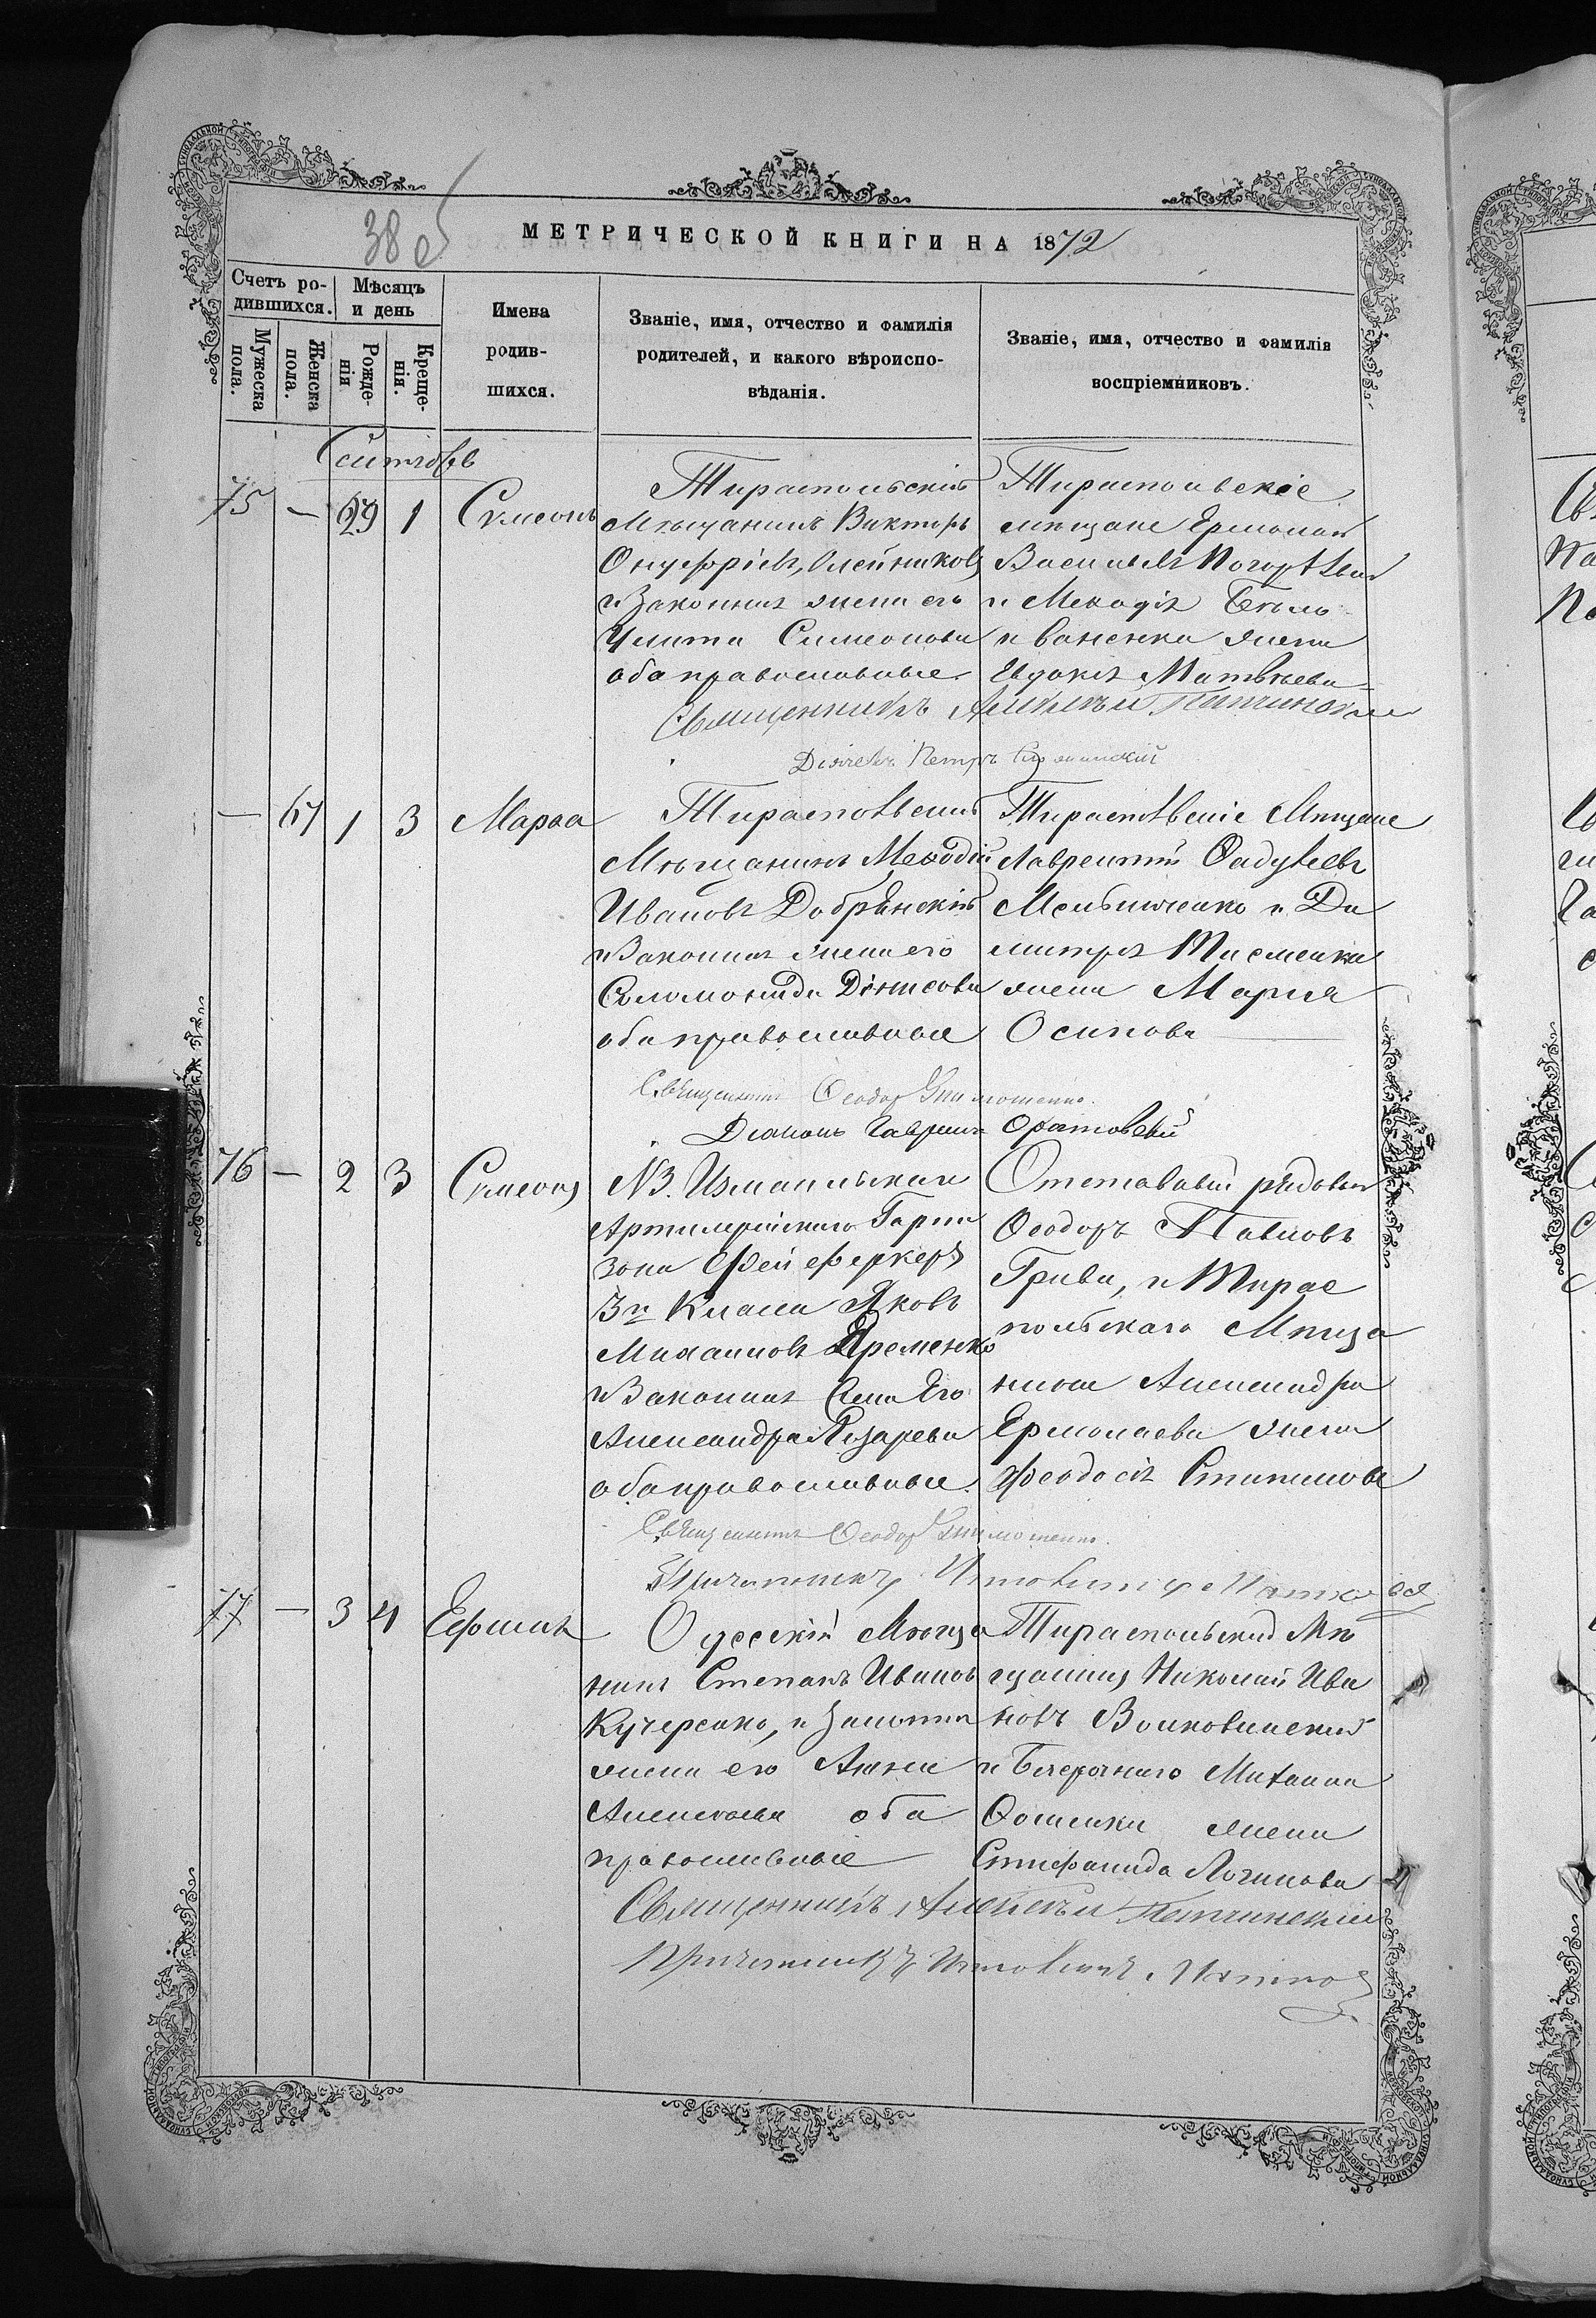 38 об
МЕТРИЧЕСКОЙ КНИГИ НА 1872
Счетъ ро-
дившихся.
Мужеска
пола.
Женска
пола.
Мѣсяцъ
и день
Рожде-
нія
Креще-
нія.
Имена
родив-
шихся.
Званіе, имя, отчество и фамилія
родителей, и какого вѣроиспо-
вѣданія.
Званіе, имя, отчество и фамилія
воспріемниковъ.
Сентябрь
75 — 29 1 Сѵмеонъ
Тираспольскій
Мѣщанинъ Викторъ
Онуфріевъ, Олейниковъ
и Законная жена его
Улита Симеонова
оба православные.
Тираспольскіе
мѣщане Ермолай
Васильевъ
и Меѳодія
жена
Евдокія Матвѣева
Священникъ Алексѣй
Діаконъ Петръ
— 67 1 3 Марѳа
Тираспольскій
Мѣщанинъ Меѳодій
Ивановъ Добрянскій
и Законная жена его
Соломонида Денисова
оба православные
Тираспольскіе Мѣщане
Лаврентій Ѳадѣевъ
Мельниченко и Ди
митрія Тисменка
жена Марія
Осипова
Священникъ Ѳеодоръ
Діаконъ Гавріилъ
76 — 2 3 Сѵмеонъ
№3. Измаильскаго
Артилерійскаго Гарни
зона Фейерверкеръ
3го Класса Яковъ
Михаиловъ Яременко
и Законная жена Его
Александра Лазарева
оба православные.
Отставный рядовой
Ѳеодоръ Павловъ
Грива, и Тирас
польскаго Мѣща
нина Александра
Ермолаева жена
Феодосія Стипанова
Священникъ Ѳеодоръ
Причетникъ
77 — 3 4 Ефимія
Одесскій Мѣща
нинъ Степанъ Ивановъ
Кучеренко, и Законная
жена его Анна
Алексѣева оба
православные
Тираспольскій Мѣ
щанинъ Николай Ива
новъ Волковинскій
и Безсрочнаго Михаила
Ѳоменки жена
Стефанида Логинова
Священникъ Алексѣй
Причетникъ